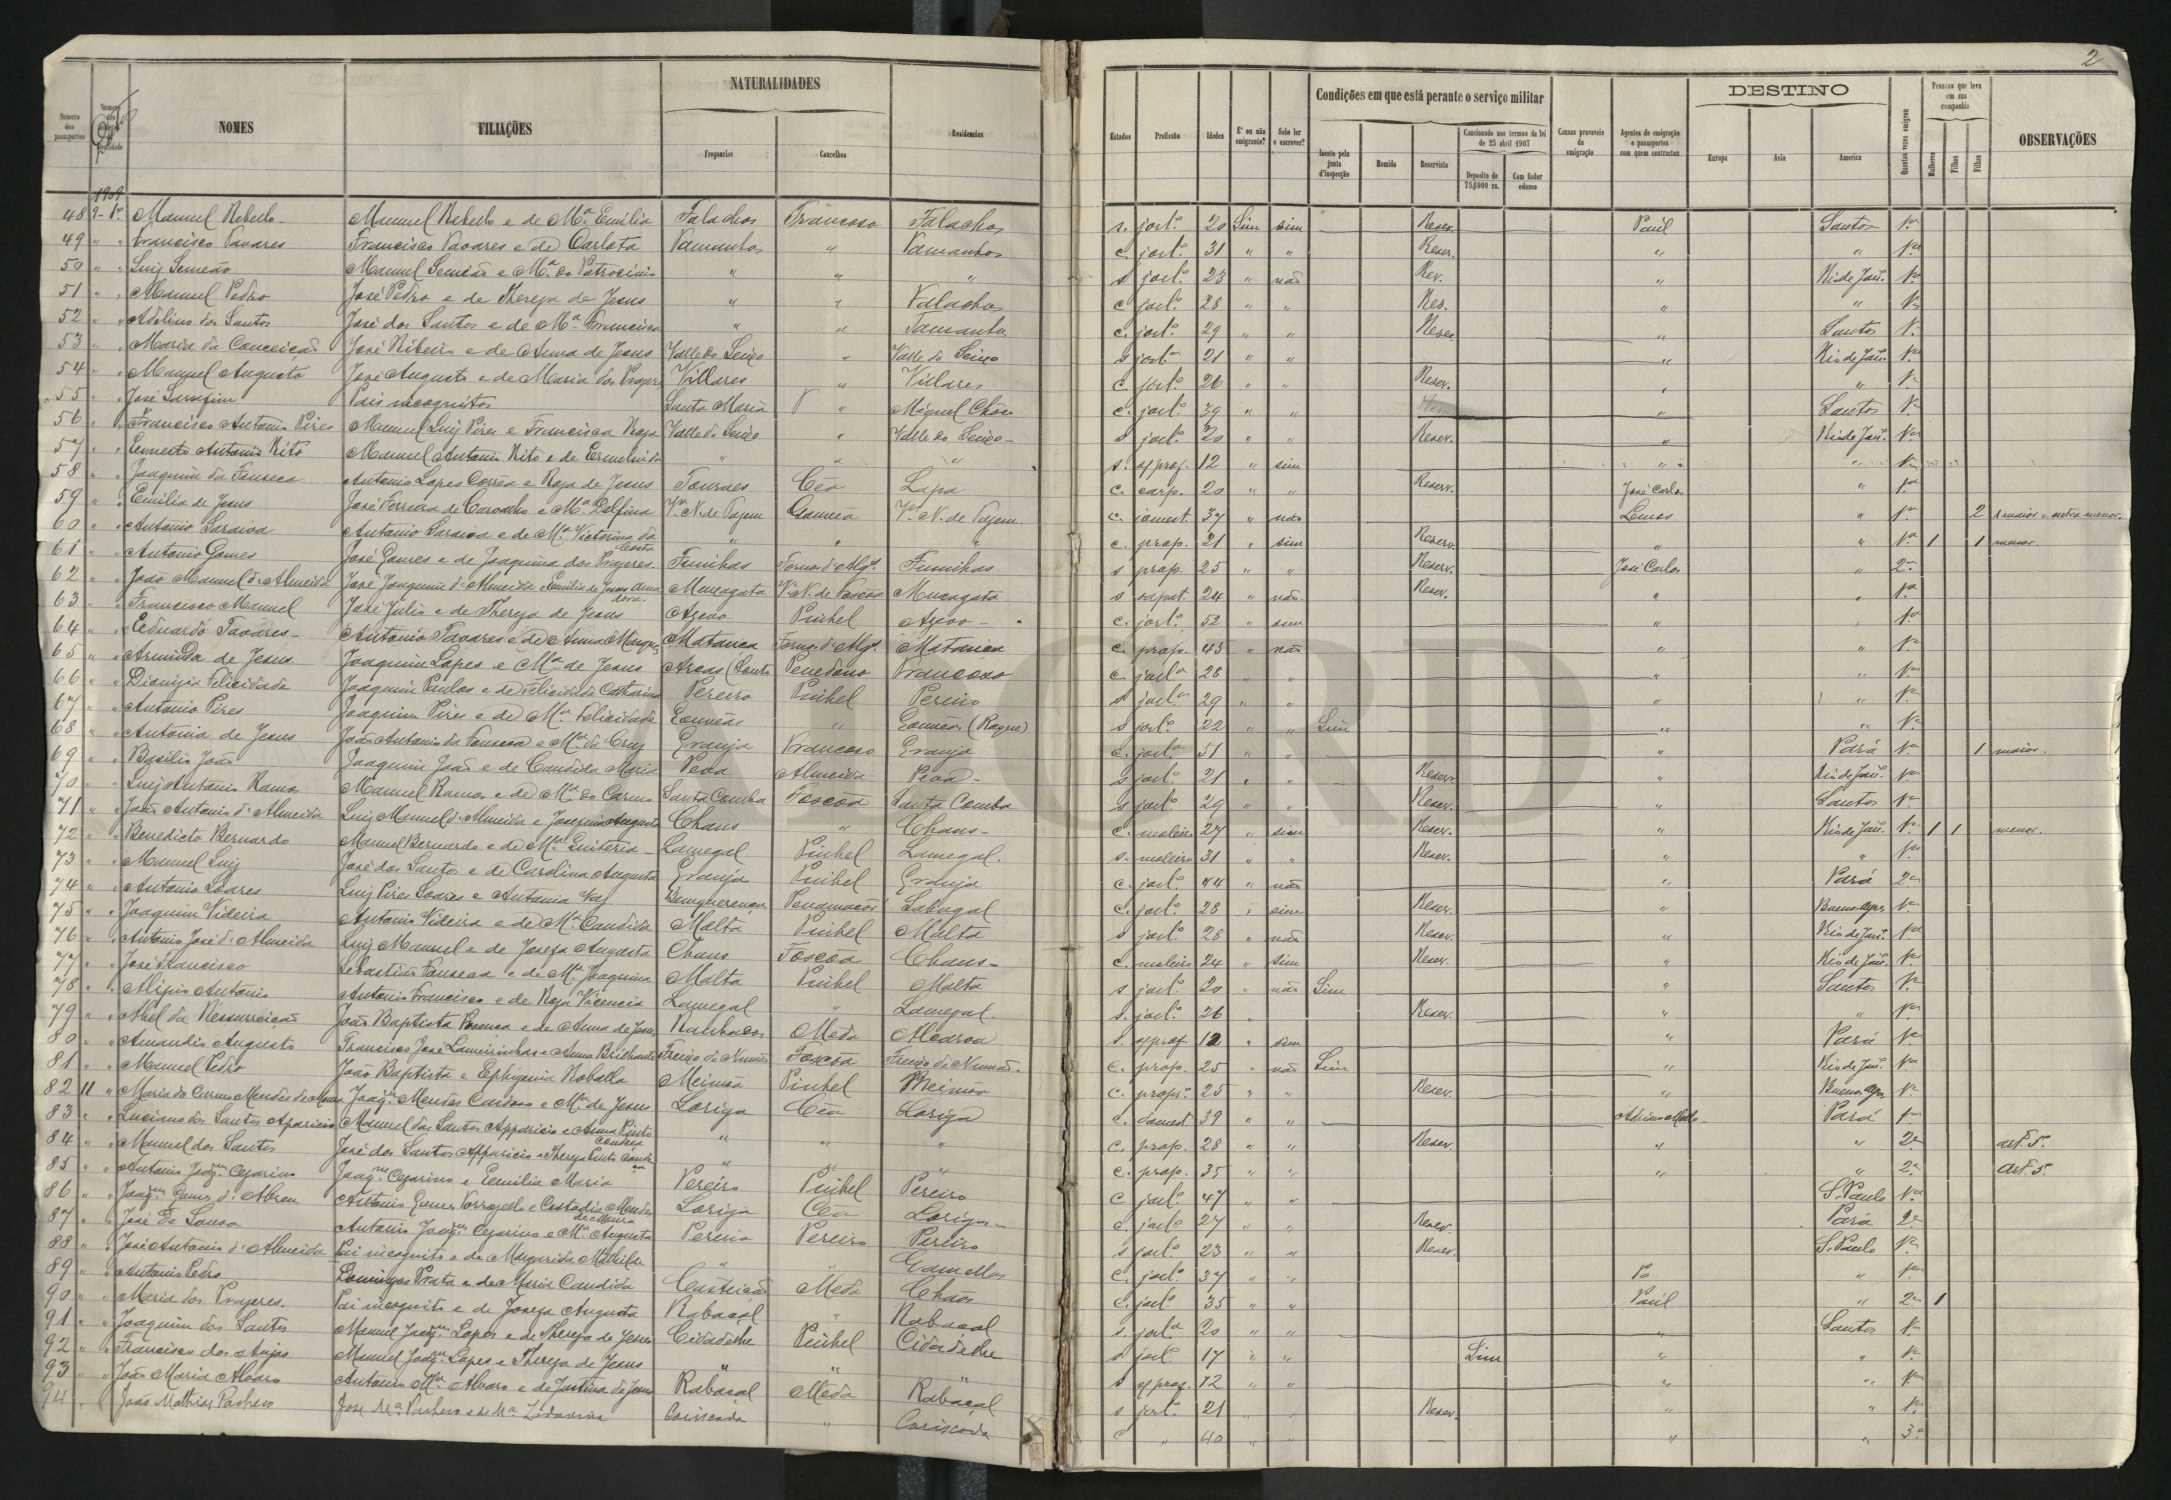 2
NATURALIDADES
Numero dos passaportes
NOMES
FILIAÇÕES
Freguezias
Concelhos
Residencias
Estados
Profissão
Idades
E' ou não emigrante?
Sabe ler e escrever?
Condições em que está perante o serviço militar
Isento pela junta d'inspecção
Remido
Reservista
Caucionado nos termos da lei de 25 abril 1907
Deposito de 75$000 rs.
Com fiador edoneo
Causas provaveis da emigração
Agentes de emigração e passaportes com quem contractou
DESTINO
Europa
Asia
America
Quantas vezes emigrou
Pessoas que leva em sua companhia
Mulheres
Filhos
Filhas
OBSERVAÇÕES
1909
48 9 - 1º Manuel Rebello - Manuel Rebello e de Mª Emilia Falachos Trancoso Falachos s. jorl.º 20 Sim sim Reser. Paúl Santos 1ª
49 " " Francisco Tavares Francisco Tavares e de Carlota Tamanhos " Tamanhos c. jorl.º 31 " " Reser. " " 1ª
50 " " Luiz Semeão Manuel Semeão e Mª do Patrocinio " " " s jorl.º 23 " não Res. " Rio de Janº. 1ª
51 " " Manuel Pedro José Pedro e de Thereza de Jesus " " Falachos c jorl.º 28 " " Res. " " 1ª
52 " " Adelino dos Santos José dos Santos e de Mª Francisca " " Tamanhos c. jorl.º 29 " " Reser. " Santos 1ª
53 " " Maria da Conceição José Ribeiro e de Anna de Jesus Valle do Seixo " Valle do Seixo s jorl.ª 21 " " " Rio de Janº. 1ª
54 " " Manuel Augusto José Augusto e de Maria dos Prazeres Villares " Villares c. jorl.º 26 " " Reser. " " 1ª
55 " " José Serafim Pais incognitos Santa Maria " Miguel Chôco c. jorl.º 39 " " " Santos 1ª
56 " " Francisco Antonio Pires Manuel Luiz Pires e Francisca Roza Valle do Seixo " Valle do Seixo - s jorl.º 20 " " Reser. " Rio de Janº. 1ª
57 " " Ernesto Antonio Rito Manuel Antonio Rito e de Ermelinda " " " s. 12 " sim " " 1ª
58 " " Joaquim da Fonseca Antonio Lopes Corrêa e Roza de Jesus Touraes Cêa Lapa c. carp. 20 " " Reserv. José Carlos " 1ª
59 " " Emilia de Jesus José Ferreira de Carvalho e Mª Delfina Vª N. de Tazem Gouvea Vª N. de Tazem c. 37 " não Lemos " 1ª 2 1 maior e outra menor.
60 " " Antonio Saraiva Antonio Saraiva e de Mª Victorina da Costa " " " c. prop. 21 " sim Reserv. " " 1ª 1 1 menor
61 " " Antonio Gomes José Gomes e de Joaquina dos Prazeres Fuinhas Fornos d'Algs. Fuinhas s prop. 25 " " Reserv. José Carlos " 2ª
62 " " João Manuel d'Almeida José Joaquim d'Almeida e Emilia de Jesus Muxagata Vª N. de Foscôa Muxagata s sapat. 24 " não Reser. " " 1ª
63 " " Francisco Manuel José Julio e de Thereza de Jesus Azevo Pinhel Azevo - c. jorl.º 52 " sim " " 1ª
64 " " Eduardo Tavares - Antonio Tavares e de Anna Marques Matança Fornos d'Algs. Matança c. prop. 43 " não " " 1ª
65 " " Arminda de Jesus Joaquim Lopes e Mª de Jesus Arcas (Souto Penedono Trancoso c. jorl.ª 28 " " " " 1ª
66 " " Dionizia Felicidade Joaquim Paulos e de Felicidade Catharina Pereiro Pinhel Pereiro s jorl.ª 29 " " " " 1ª
67 " " Antonio Pires Joaquim Pires e de Mª Felicidade Gouveas " Gouveas s jorl.º 22 " " Sim " " 1ª
68 " " Antonia de Jesus João Antonio da Fonseca e Mª da Cruz Granja Trancoso Granja c. jorl.ª 51 " " " Pará 1ª 1 maior.
69 " " Basilio João Joaquim João e de Candida Maria Peva Almeida Peva - s jorl.º 21 " " Reserv. " Rio de Janº. 1ª
70 " " Luiz Antonio Ramos Manuel Ramos e de Mª do Carmo Santa Comba Foscôa Santa Comba s jorl.º 29 " " Reser. " Santos 1ª
71 " " João Antonio d'Almeida Luiz Manuel d'Almeida e Josepha Augusta Chans " Chans - c. moleiro 27 " sim Reser. " Rio de Janº. 1ª 1 1 menor.
72 " " Benedicto Bernardo Manuel Bernardo e de Mª Quiteria - Lamegal Pinhel Lamegal. s. moleiro 31 " " Reser. " " 1ª
73 " " Manuel Luiz José dos Santos e de Carolina Augusta Granja Pinhel Granja c. jorl.º 44 " não " Pará 2ª
74 " " Antonio Soares Luiz Pires Soares e Antonia Vaz Benquerença Penamacôr Sabugal c. jorl.º 28 " sim Reser. " Buenos Ayres 1ª
75 " " Joaquim Videira Antonio Videira e de Mª Candida Malta Pinhel Malta s jorl.º 28 " não Reser. " Rio de Janº. 1ª
76 " " Antonio José d'Almeida Luiz Manuel e de Josefa Augusta Chans Foscoa Chans - c. moleiro 24 " sim Reser. " Rio de Janº. 1ª
77 " " José Francisco Sebastião Fonseca e de Mª Joaquina Malta Pinhel Malta s jorl.º 20 " não Sim " Santos 1ª
78 " " Alipio Antonio Antonio Francisco e de Roza Vicencia Lamegal " Lamegal. s. jorl.º 26 " Reser. " " 1ª
79 " " Abel da Ressurreição João Baptista e de Anna de Jesus Ranhados Meda s. 12 " sim " Pará 1ª
80 " " Amandio Augusto Francisco José Lameirinhas e Anna Brilhante Freixo de Numão Foscôa Freixo de Numão - c. prop. 25 " não Sim " Rio de Janº. 1ª
81 " " Manuel Pedro João Baptista e Ephigenia Roballa Meimôa Pinhel Meimôa c. propº 25 " " Reser. " Buenos Ayres 1ª
82 11 " Maria do Carmo Mendes de Moura Joaqm Mendes Cardoso e Mª de Jesus Loriga Cêa Loriga c. domest 39 " " Adriano Mello - Pará 1ª
83 " " Luciano dos Santos Aparicio Manuel dos Santos Apparicio e Anna Pinto " " " c. prop. 28 " " Reser. " " 2ª artº 5º
84 " " Manuel dos Santos José dos Santos Apparicio e Thereza Pinto " " " c. prop. 35 " " " " 2ª artº 5º
85 " " Antonio Joaqm Cezarino Joaqm Cezarino e Emilia Maria Pereiro Pinhel Pereiro c jorl.º 47 " " S. Paulo 1ª
86 " " Joaqm Gomes d'Abreu Antonio Gomes e Custodia Mendes de Moura Loriga Cêa Loriga - c. jorl.º 27 " " Reser. Pará 2ª
87 " " José de Sousa Antonio Joaqm Cezarino e Mª Augusta Pereiro Pereiro Pereiro s jorl.º 23 " " Reser. S. Paulo 1ª
88 " " José Antonio d'Almeida Pai incognito e de Margarida Mathilde " " Gamellas c. jorl.º 37 " " " 1ª
89 " " Antonio Pedro Domingos Prata e de Maria Candida Casteição Meda Chãos c. jorl.º 35 " " Paúl " 2ª 1
90 " " Maria dos Prazeres. Pai incognito e de Josefa Augusta Rabaçal " Rabaçal s. jorl.ª 20 " " Santos 1ª
91 " " Joaquim dos Santos Manuel Joaqm Lopes e de Thereza de Jesus Cidadelhe Pinhel Cidadelhe s jorl.º 17 " " Sim " " 1ª
92 " " Francisco dos Anjos Manuel Joaqm Lopes e Thereza de Jesus " " " s 12 " " " " 1ª
93 " " João Maria Alvaro Antonio Mª Alvaro e de Justina de Jesus Rabaçal Meda Rabaçal s jorl.º 21 " " Reser. " " 1ª
94 " João Mathias Pacheco José Mª Pacheco e de Mª Coriscada " Coriscada c " 40 " " " " 3ª